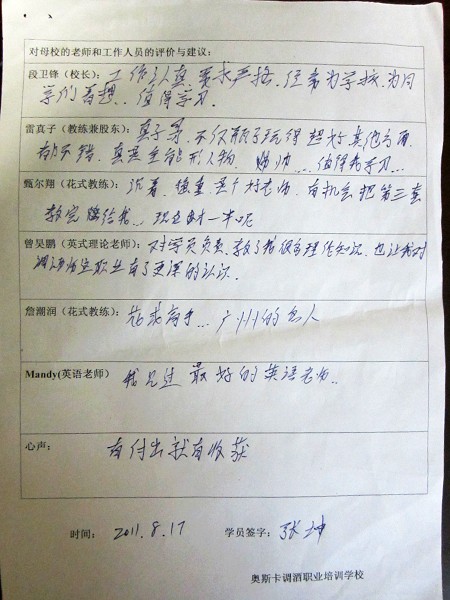 对母校的老师和工作人员的评价与建议：
段卫锋（校长）：工作认真 要求严格，经常为学校、为同
学们着想．值得学习
雷真子（教练兼股东）：真子哥，不仅瓶子玩得超好 其他方面
都不错，真是全能形人物，值得我学习…
甄尔翔（花式教练）：沉着，稳重 是个好老师，有机会把第三套
教完给我…现在时一半呢
曾昊鹏（英式理论老师）：对学员负责，教了我很多理论知识，也让我对
调酒师这职业有了更深的认识．
詹潮润（花式教练）：花式高手… 广州的名人
Mandy(英语老师） 我见过最好的英语老师..
心声： 有付出就有收获
时间： 2011.8.17 学员签字：张坤
奥斯卡调酒职业培训学校